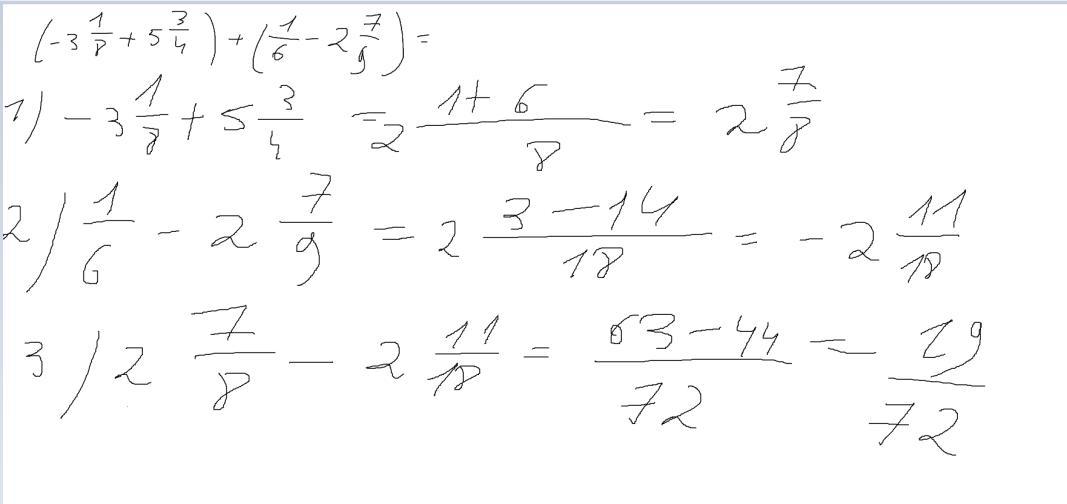 (-3 1/8 + 5 3/4) + (1/6 - 2 7/9) =
1) -3 1/8 + 5 3/4 = 2 (1+6)/8 = 2 7/8
2) 1/6 - 2 7/9 = 2 (3-14)/18 = -2 11/18
3) 2 7/8 - 2 11/18 = (63-44)/72 = 19/72